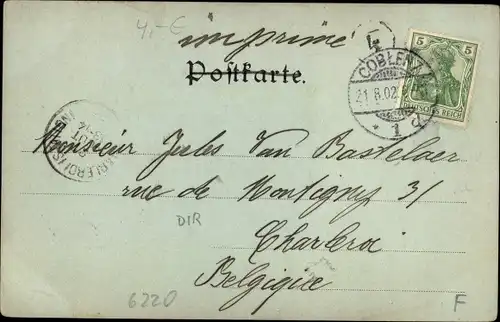 4,- €
imprimé
Postkarte.
COBLENZ
21.8.02.
* 1 P
5 5
DEUTSCHES REICH
CHARLEROI (STATION)
Monsieur Jules Van Bastelaer
rue de Montigny 31
DIR
Charleroi
Belgique
6220
F